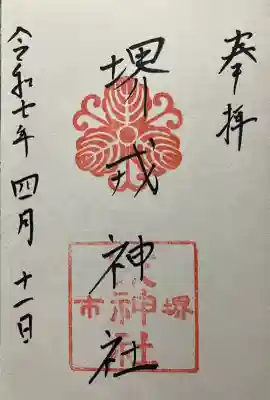 奉拝
堺戎神社
令和七年 四月 十一日
堺市
神社